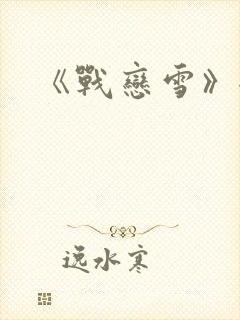 《戰戀雪》
逸水寒